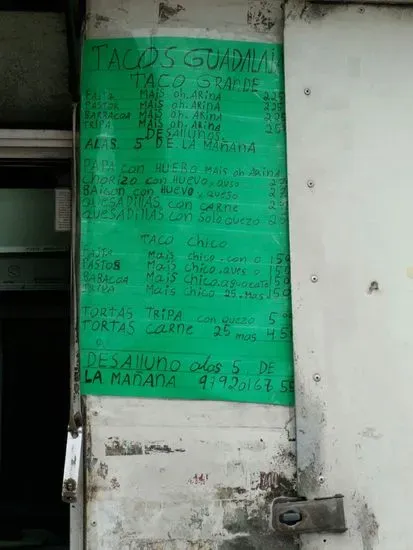 TACOS GUADALAJ
TACO GRANDE
FAJITA MAIS oh. ARINA 225
PASTOR MAIS oh. ARINA 225
BARBACOA MAIS oh. ARINA 225
TRIPA MAIS oh. ARINA 25
DESALLUNOS
ALAS 5 DE LA MAÑANA
PAPA con HUEBO MAIS oh ARINA
CHORIZO con HUEVO, QUSO 2
BAICON con HUEVO, QUESO 2
QUESADILLAS con CARNE 2
QUESADILLAS con SOLO QUEZO 2
TACO CHICO
Mais chico. con 150
PASTOS Mais chico. ques 150
BABACOA Mais chico. aguacato 150
TRIPA Mais chico 25. Mas 50
TORTAS TRIPA con quezo 5
TORTAS CARNE 25 mas 45
DESALLUNO alos 5 DE
LA MAÑANA 979 2016755